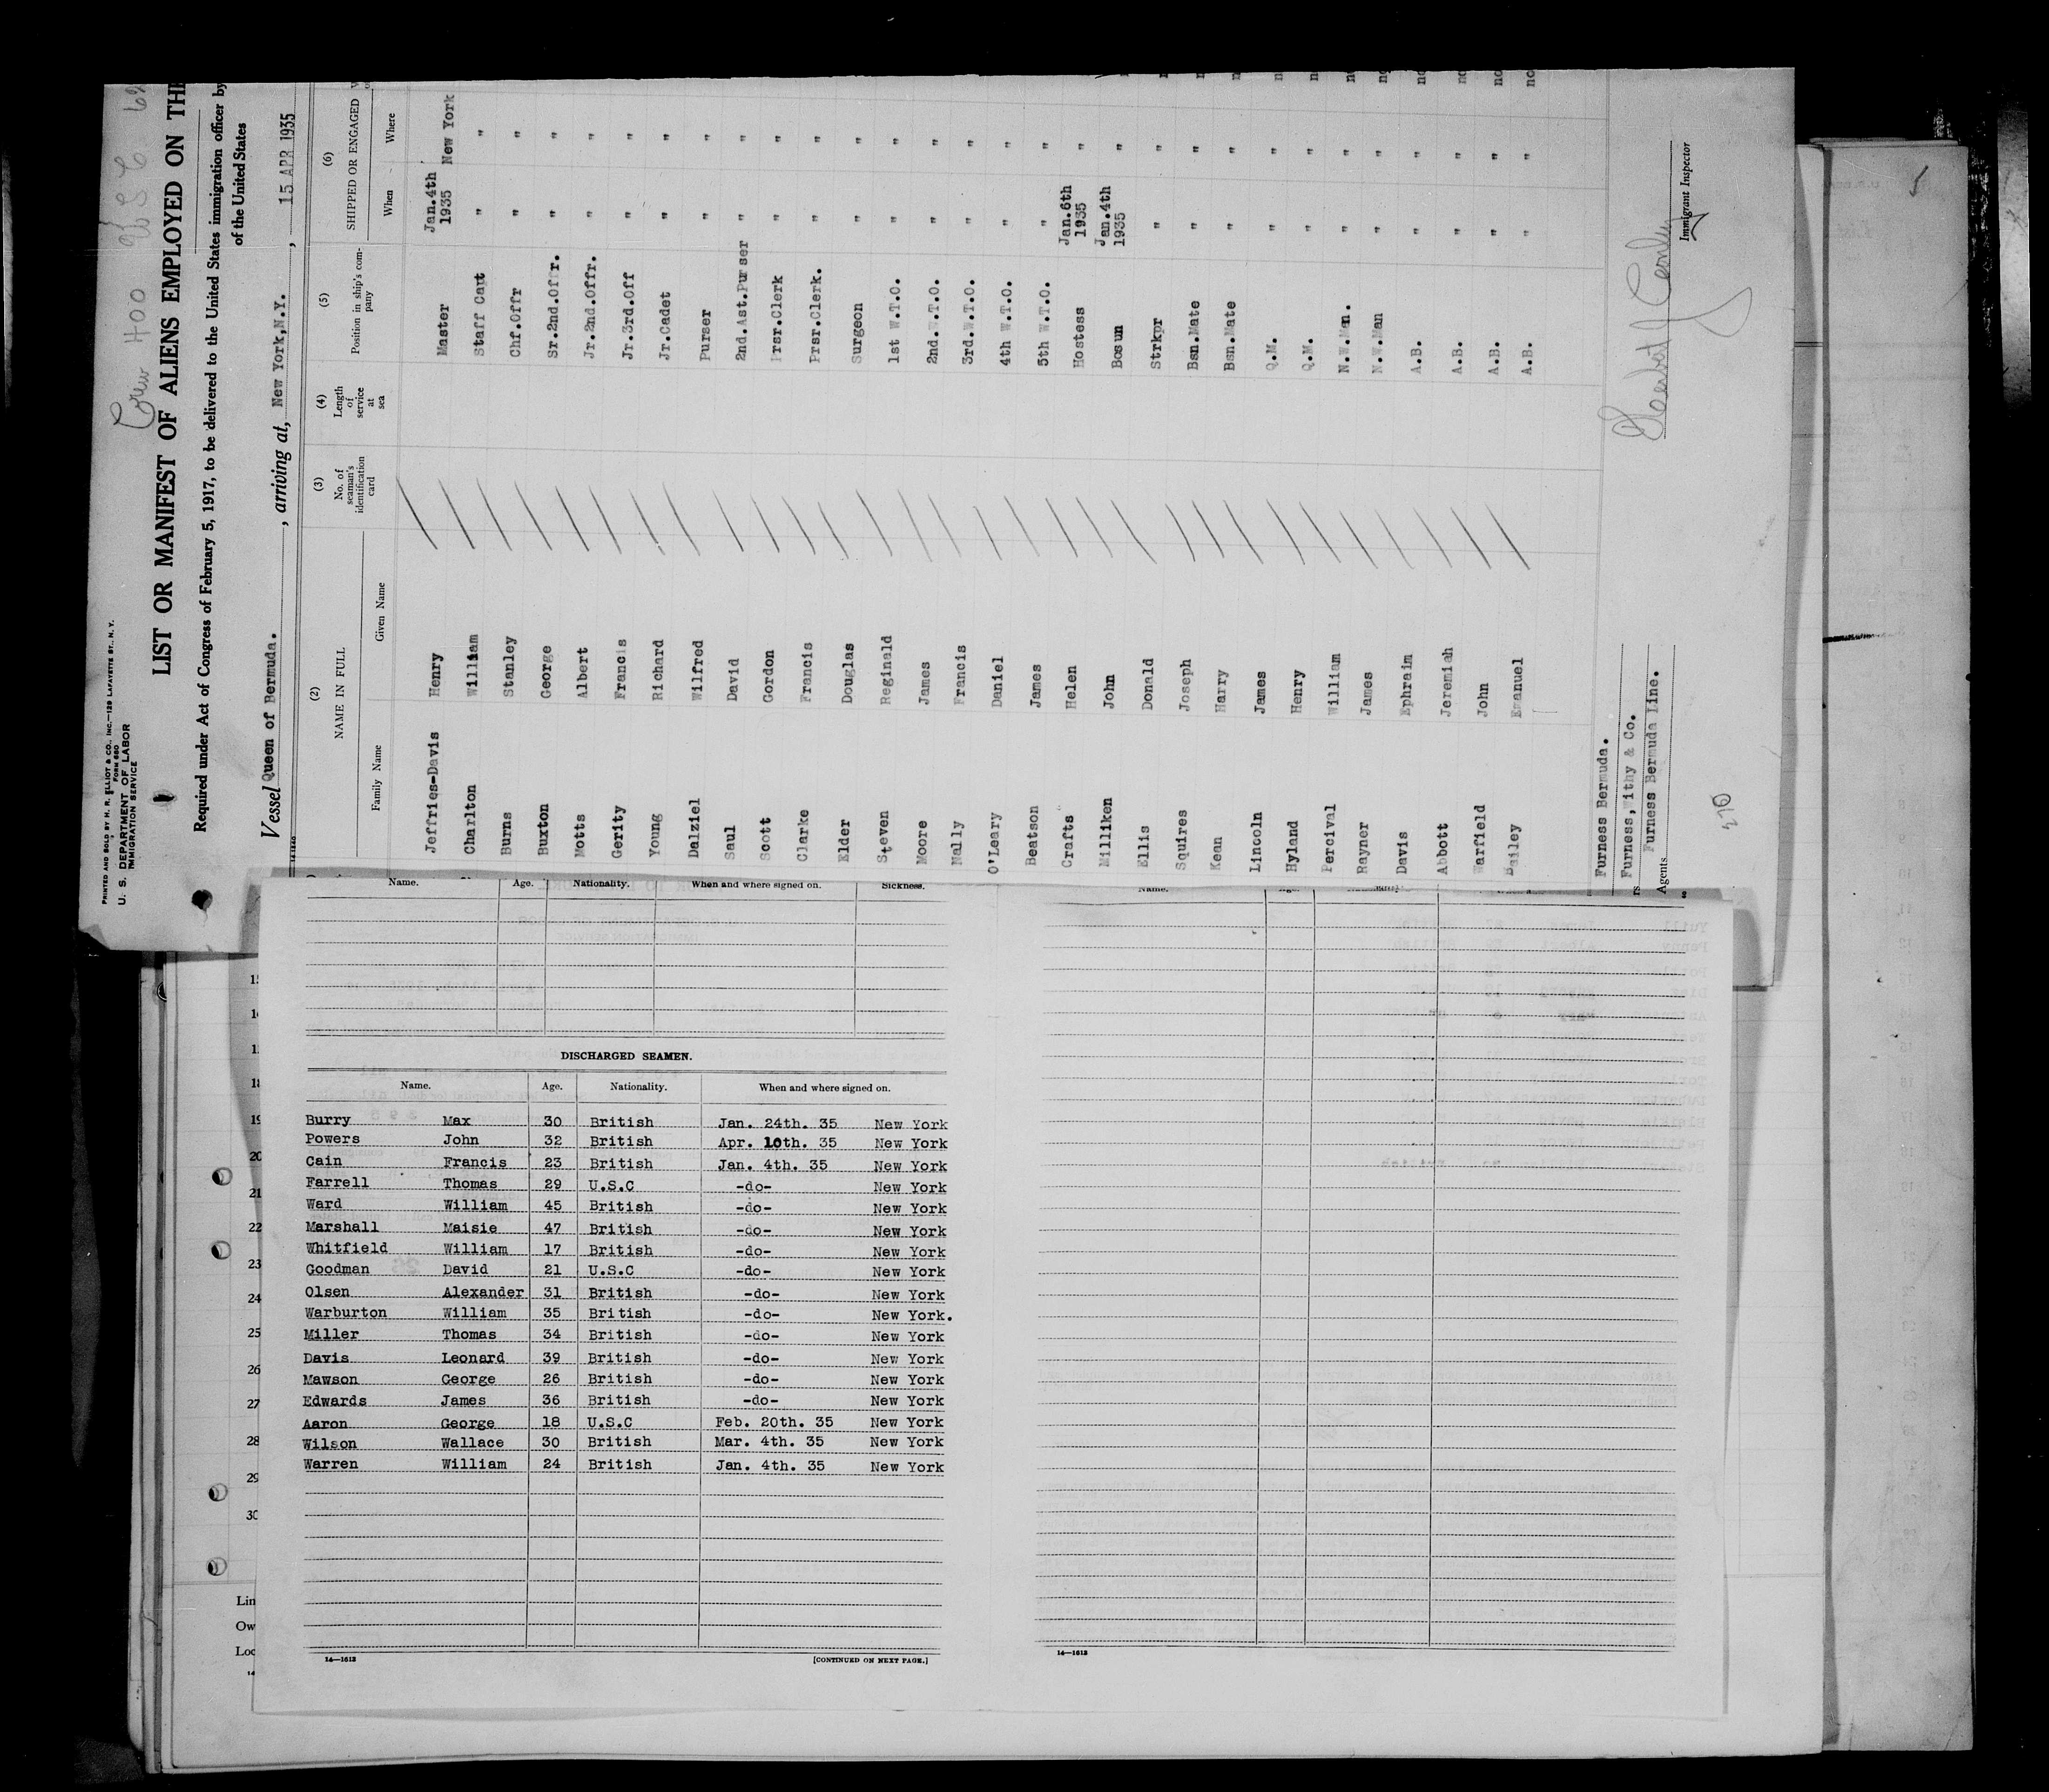 Crew 400
PRINTED AND SOLD BY H. R. ELLIOT & CO., INC.—129 LAFAYETTE ST., N. Y.
FORM 680
U. S. DEPARTMENT OF LABOR
IMMIGRATION SERVICE
LIST OR MANIFEST OF ALIENS EMPLOYED ON THE
Required under Act of Congress of February 5, 1917, to be delivered to the United States immigration officer by
of the United States
Vessel Queen of Bermuda. , arriving at, New York,N.Y. , 15 APR 1935
(2) (3) (4) (5) (6)
NAME IN FULL No. of seaman's identification card Length of service at sea Position in ship's company SHIPPED OR ENGAGED
Family Name Given Name When Where
Jeffries-Davis Henry Master Jan.4th 1935 New York
Charlton William Staff Capt " "
Burns Stanley Chf.Offr " "
Buxton George Sr.2nd.Offr. " "
Motts Albert Jr.2nd.Offr. " "
Gerity Francis Jr.3rd.Off " "
Young Richard Jr.Cadet " "
Dalziel Wilfred Purser " "
Saul David 2nd.Ast.Purser " "
Scott Gordon Prsr.Clerk " "
Clarke Francis Prsr.Clerk. " "
Elder Douglas Surgeon " "
Steven Reginald 1st W.T.O. " "
Moore James 2nd.W.T.O. " "
Nally Francis 3rd.W.T.O. " "
O'Leary Daniel 4th W.T.O. " "
Beatson James 5th W.T.O. " "
Crafts Helen Hostess Jan.6th 1935 "
Milliken John Bosun Jan.4th 1935 "
Ellis Donald Strkpr " "
Squires Joseph Bsn.Mate " "
Kean Harry Bsn.Mate " "
Lincoln James Q.M. " "
Hyland Henry Q.M. " "
Percival William N.W.Man. " "
Rayner James N.W.Man " "
Davis Ephraim A.B. " "
Abbott Jeremiah A.B. " "
Warfield John A.B. " "
Bailey Emanuel A.B. " "
Furness Bermuda.
Furness,Withy & Co.
Agents Furness Bermuda Line.
Immigrant Inspector
Name. Age. Nationality. When and where signed on. Sickness.
DISCHARGED SEAMEN.
Name. Age. Nationality. When and where signed on.
Burry Max 30 British Jan. 24th. 35 New York
Powers John 32 British Apr. 10th. 35 New York
Cain Francis 23 British Jan. 4th. 35 New York
Farrell Thomas 29 U.S.C -do- New York
Ward William 45 British -do- New York
Marshall Maisie 47 British -do- New York
Whitfield William 17 British -do- New York
Goodman David 21 U.S.C -do- New York
Olsen Alexander 31 British -do- New York
Warburton William 35 British -do- New York.
Miller Thomas 34 British -do- New York
Davis Leonard 39 British -do- New York
Mawson George 26 British -do- New York
Edwards James 36 British -do- New York
Aaron George 18 U.S.C Feb. 20th. 35 New York
Wilson Wallace 30 British Mar. 4th. 35 New York
Warren William 24 British Jan. 4th. 35 New York
14—1613 [CONTINUED ON NEXT PAGE.]
14—1613
19
20
21
22
23
24
25
26
27
28
29
30
Lin
Ow
Loc